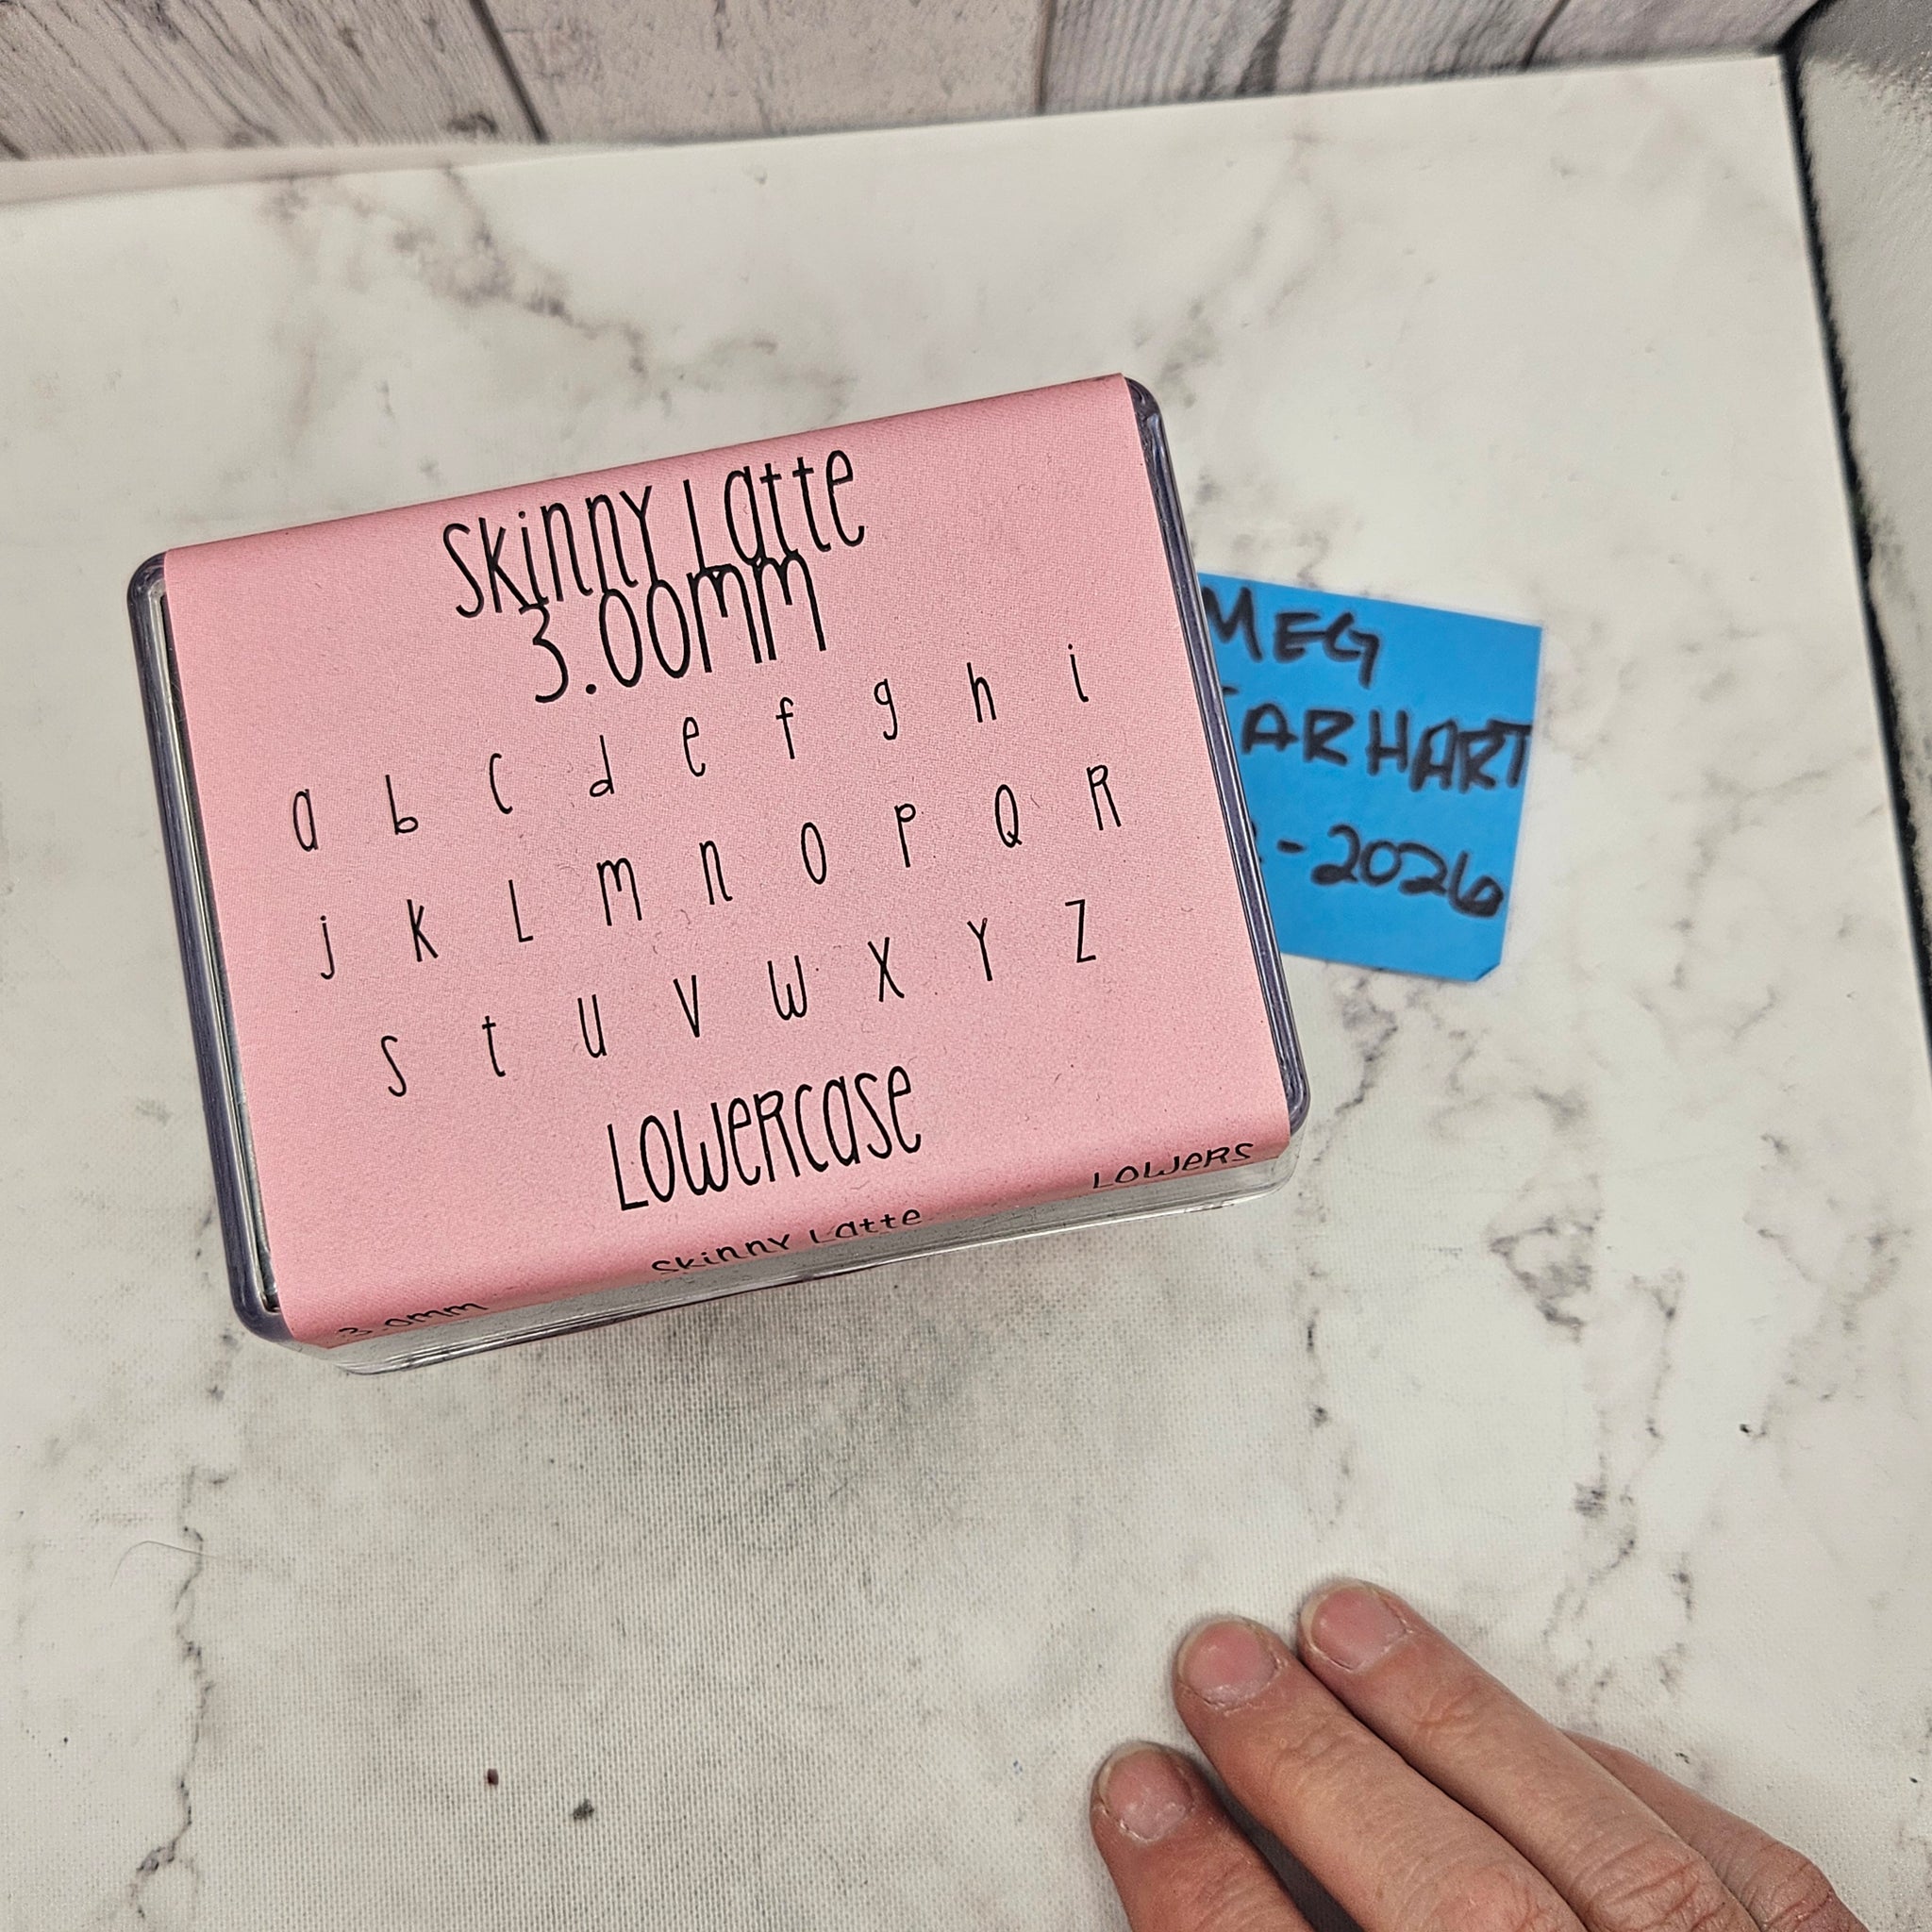 Skinny Latte
3.00mm
a b c d e f g h i
j k L m n o p Q R
s t u v w x y z
Lowercase
3.0mm Skinny Latte Lowers
MEG
ARHART
-2026